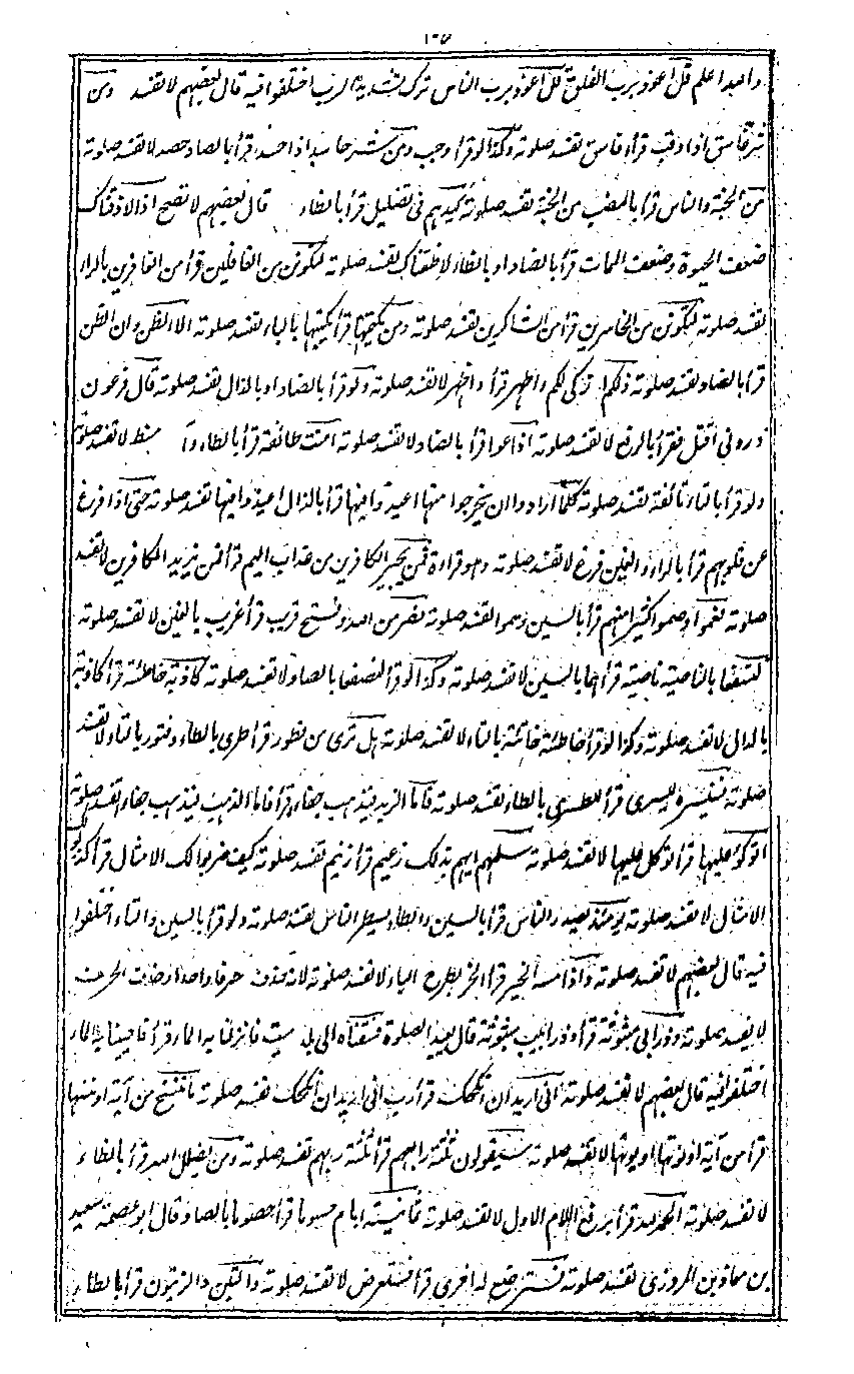 ١٠٥
والله اعلم قل اعوذ برب الفلق قل اعوذ برب الناس ترك تشديد الرب اختلفوا فيه قال بعضهم لا تفسد ومن
شر غاسق اذا وقب قرأ فاسق تفسد صلوته وكذا لو قرأ وجب ومن شر حاسد اذا حسد قرأ بالصاد حصد لا تفسد صلوته
من الجنة والناس قرأ بالنصب من الجنة تفسد صلوته كيدهم فى تضليل قرأ بالظاء قال بعضهم لا تصح اذا لاذقناك
ضعف الحيوة وضعف الممات قرأ بالضاد او بالظاء لاظقناك تفسد صلوته لتكونن من الغافلين قرأ من الغافرين بالراء
تفسد صلوته لتكونن من الخاسرين قرأ من الشاكرين تفسد صلوته ومن يكتمها قرأ يكتبها بالباء تفسد صلوته الا الظن وان الظن
قرأ بالضاد تفسد صلوته ذلكم ازكى لكم واطهر قرأ واظهر لا تفسد صلوته ولو قرأ بالضاد او بالذال تفسد صلوته قال فرعون
ذرونى اقتل فقرأ بالرفع لا تفسد صلوته اذاعوا قرأ بالضاد لا تفسد صلوته امنت طائفة قرأ بالطاء لا تفسد صلوته
ولو قرأ بالتاء تائفة تفسد صلوته كلما ارادوا ان يخرجوا منها اعيدوا فيها قرأ بالذال اعيذوا فيها تفسد صلوته حتى اذا فزع
عن قلوبهم قرأ بالراء والغين فرغ لا تفسد صلوته وهو قراءة فمن يجير الكافرين من عذاب اليم قرأ فمن يزيد الكافرين لا تفسد
صلوته فعموا وصموا كثير منهم قرأ بالسين وسموا تفسد صلوته نصر من الله وفتح قريب قرأ غريب بالغين لا تفسد صلوته
لنسفعا بالناصية ناصية قرأها بالسين لا تفسد صلوته وكذا لو قرأ لنصفعا بالصاد لا تفسد صلوته كاذبة خاطئة قرأ كادبة
بالدال لا تفسد صلوته وكذا لو قرأ خاطئة خاتئة بالتاء لا تفسد صلوته هل ترى من فطور قرأ طرى بالطاء وفتور بالتاء لا تفسد
صلوته فسنيسره لليسرى قرأ للعسرى بالطاء تفسد صلوته فاما الزبد فيذهب جفاء قرأ فاما الذهب فيذهب جفاء تفسد صلوته
اتوكؤ عليها قرأ اتوكل عليها لا تفسد صلوته سلهم ايهم بذلك زعيم قرأ زنيم تفسد صلوته كيف ضربوا لك الامثال قرأ
الامثال لا تفسد صلوته يومئذ يصدر الناس قرأ بالسين والطاء يسطر الناس تفسد صلوته ولو قرأ بالسين والتاء اختلفوا
فيه قال بعضهم لا تفسد صلوته واذا مسه الخير قرأ الخر بطرح الياء لا تفسد صلوته لانه حذف حرفا واحدا
لا يفسد صلوته وزرابى مبثوثة قرأ وذرابيب مبثوثة قال يعيد الصلوة فسقناه الى بلد ميت فانزلنا به الماء قرأ فاحيينا به الماء
اختلفوا فيه قال بعضهم لا تفسد صلوته انى اريد ان انكحك قرأ رب انى اريد ان انكحك تفسد صلوته ما ننسخ من آية او ننسها
قرأ من آية او نوتها لا تفسد صلوته سيقولون ثلثة رابعهم قرأ ثلثة ربهم تفسد صلوته ومن يضلل الله قرأ بالظاء
لا تفسد صلوته الحمد لله قرأ برفع اللام الاول لا تفسد صلوته ثمانية ايام حسوما قرأ حصوما بالصاد قال ابو عصمة سعيد
بن معاذ بن المروزى تفسد صلوته فسترضع له اخرى قرأ فستعرض لا تفسد صلوته والتين والزيتون قرأ بالطاء